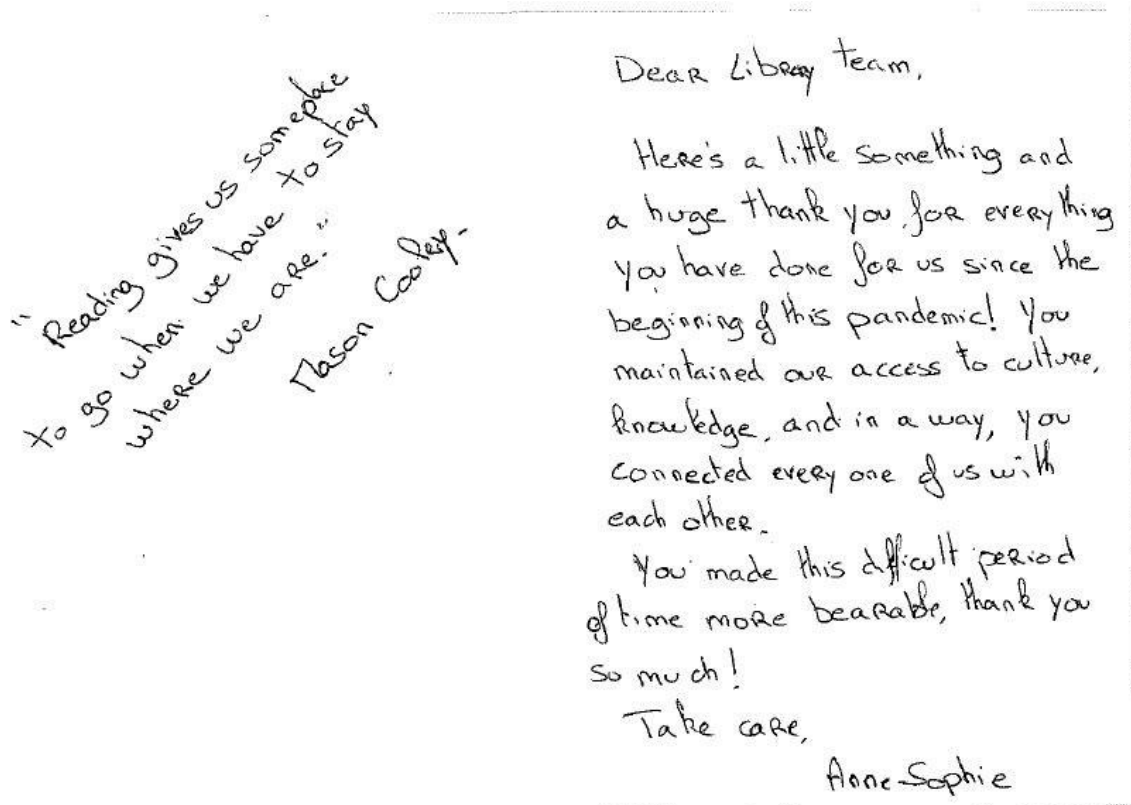 "Reading gives us someplace
to go when we have to stay
where we are."
Mason Cooley.
Dear Library team,
Here's a little something and
a huge thank you for everything
you have done for us since the
beginning of this pandemic! You
maintained our access to culture,
knowledge, and in a way, you
connected every one of us with
each other.
You made this difficult period
of time more bearable, thank you
so much!
Take care,
Anne-Sophie